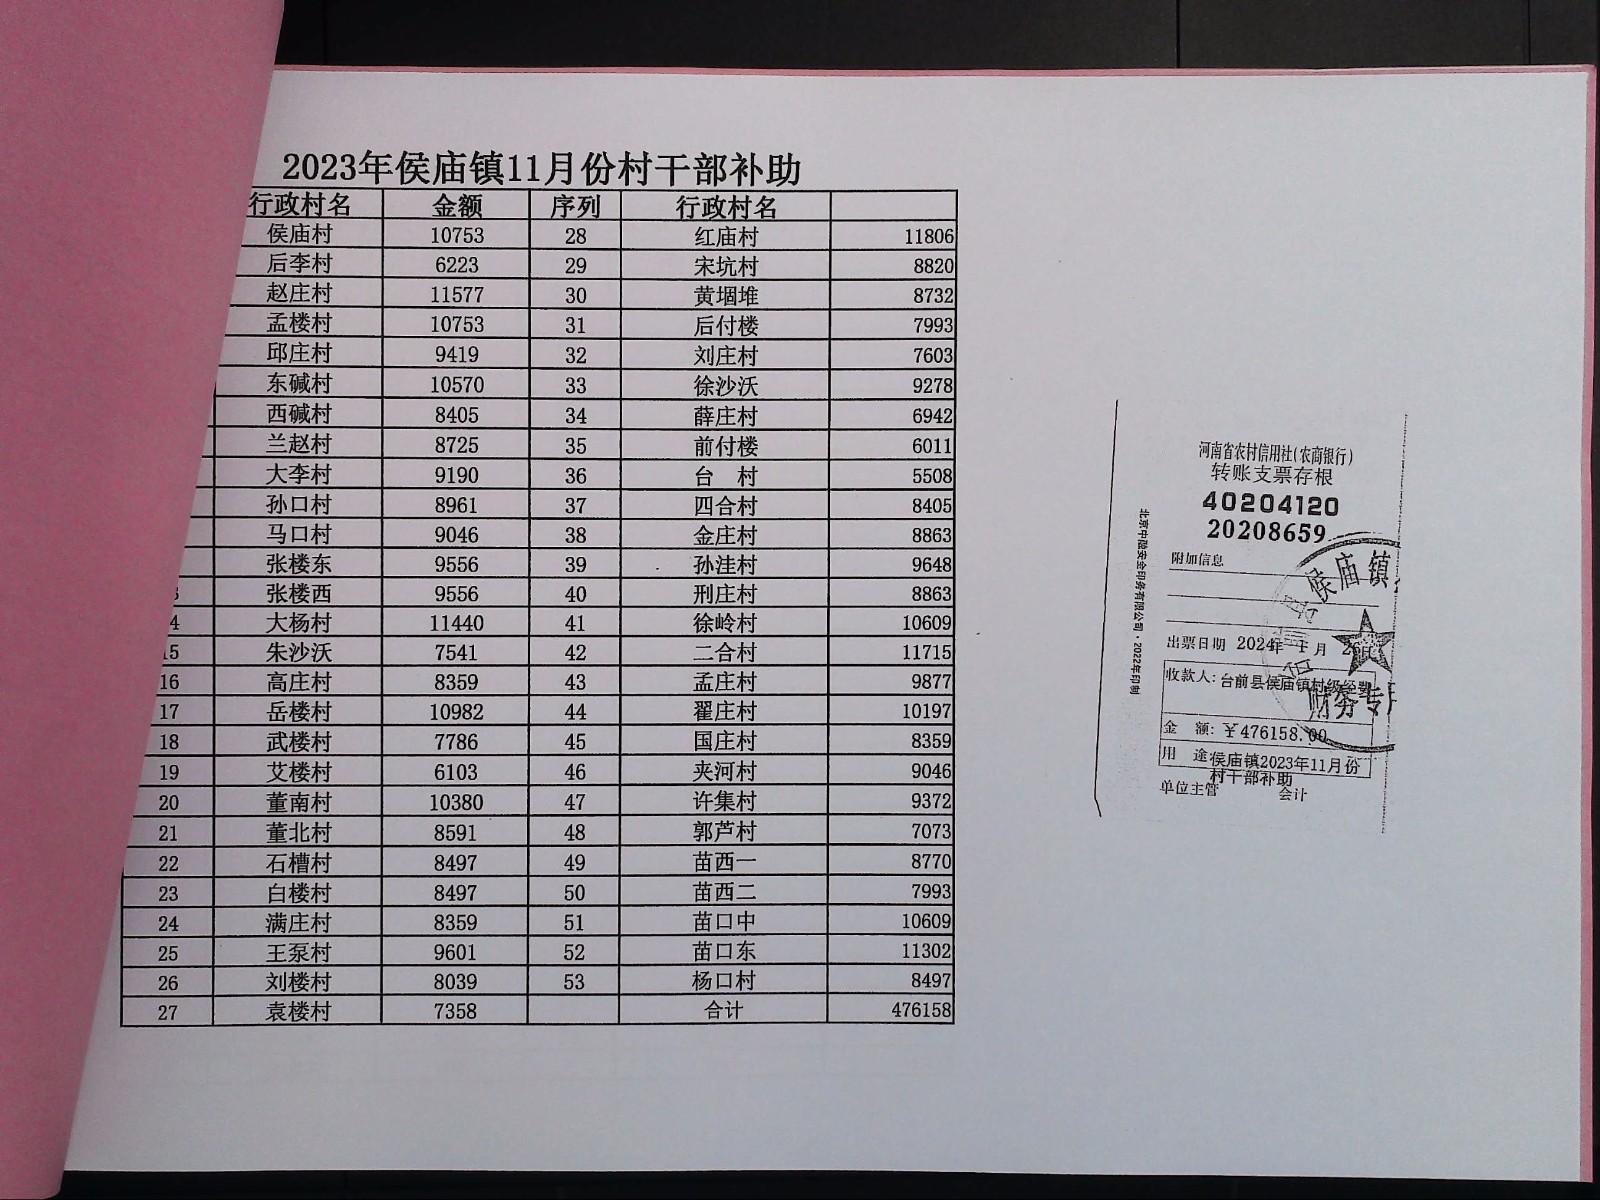 2023年侯庙镇11月份村干部补助
行政村名 金额 序列 行政村名
侯庙村 10753 28 红庙村 11806
后李村 6223 29 宋坑村 8820
赵庄村 11577 30 黄堌堆 8732
孟楼村 10753 31 后付楼 7993
邱庄村 9419 32 刘庄村 7603
东碱村 10570 33 徐沙沃 9278
西碱村 8405 34 薛庄村 6942
兰赵村 8725 35 前付楼 6011
大李村 9190 36 台 村 5508
孙口村 8961 37 四合村 8405
马口村 9046 38 金庄村 8863
张楼东 9556 39 孙洼村 9648
张楼西 9556 40 刑庄村 8863
4 大杨村 11440 41 徐岭村 10609
15 朱沙沃 7541 42 二合村 11715
16 高庄村 8359 43 孟庄村 9877
17 岳楼村 10982 44 翟庄村 10197
18 武楼村 7786 45 国庄村 8359
19 艾楼村 6103 46 夹河村 9046
20 董南村 10380 47 许集村 9372
21 董北村 8591 48 郭芦村 7073
22 石槽村 8497 49 苗西一 8770
23 白楼村 8497 50 苗西二 7993
24 满庄村 8359 51 苗口中 10609
25 王泵村 9601 52 苗口东 11302
26 刘楼村 8039 53 杨口村 8497
27 袁楼村 7358 合计 476158
河南省农村信用社(农商银行)
转账支票存根
40204120
20208659
附加信息
出票日期 2024年 1 月
收款人:台前县侯庙镇村级经费
金 额:￥476158.00
用 途 侯庙镇2023年11月份
村干部补助
单位主管 会计
北京中融安全印务有限公司·2022年印制
侯庙镇
财务专用